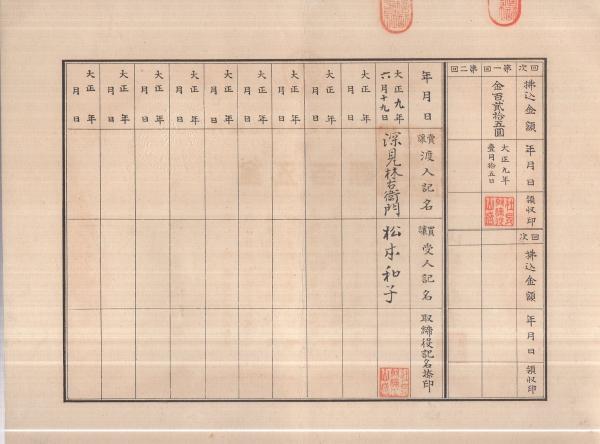 回次
拂込金額
年月日
領収印
回次
拂込金額
年月日
領収印
第一回
金百貳拾五圓
大正九年
壹月拾五日
第二回
年月日
賣譲渡人記名
買譲受人記名
取締役記名捺印
大正九年
六月十九日
深見林右衛門
松本和子
大正 年
月 日
大正 年
月 日
大正 年
月 日
大正 年
月 日
大正 年
月 日
大正 年
月 日
大正 年
月 日
大正 年
月 日
大正 年
月 日